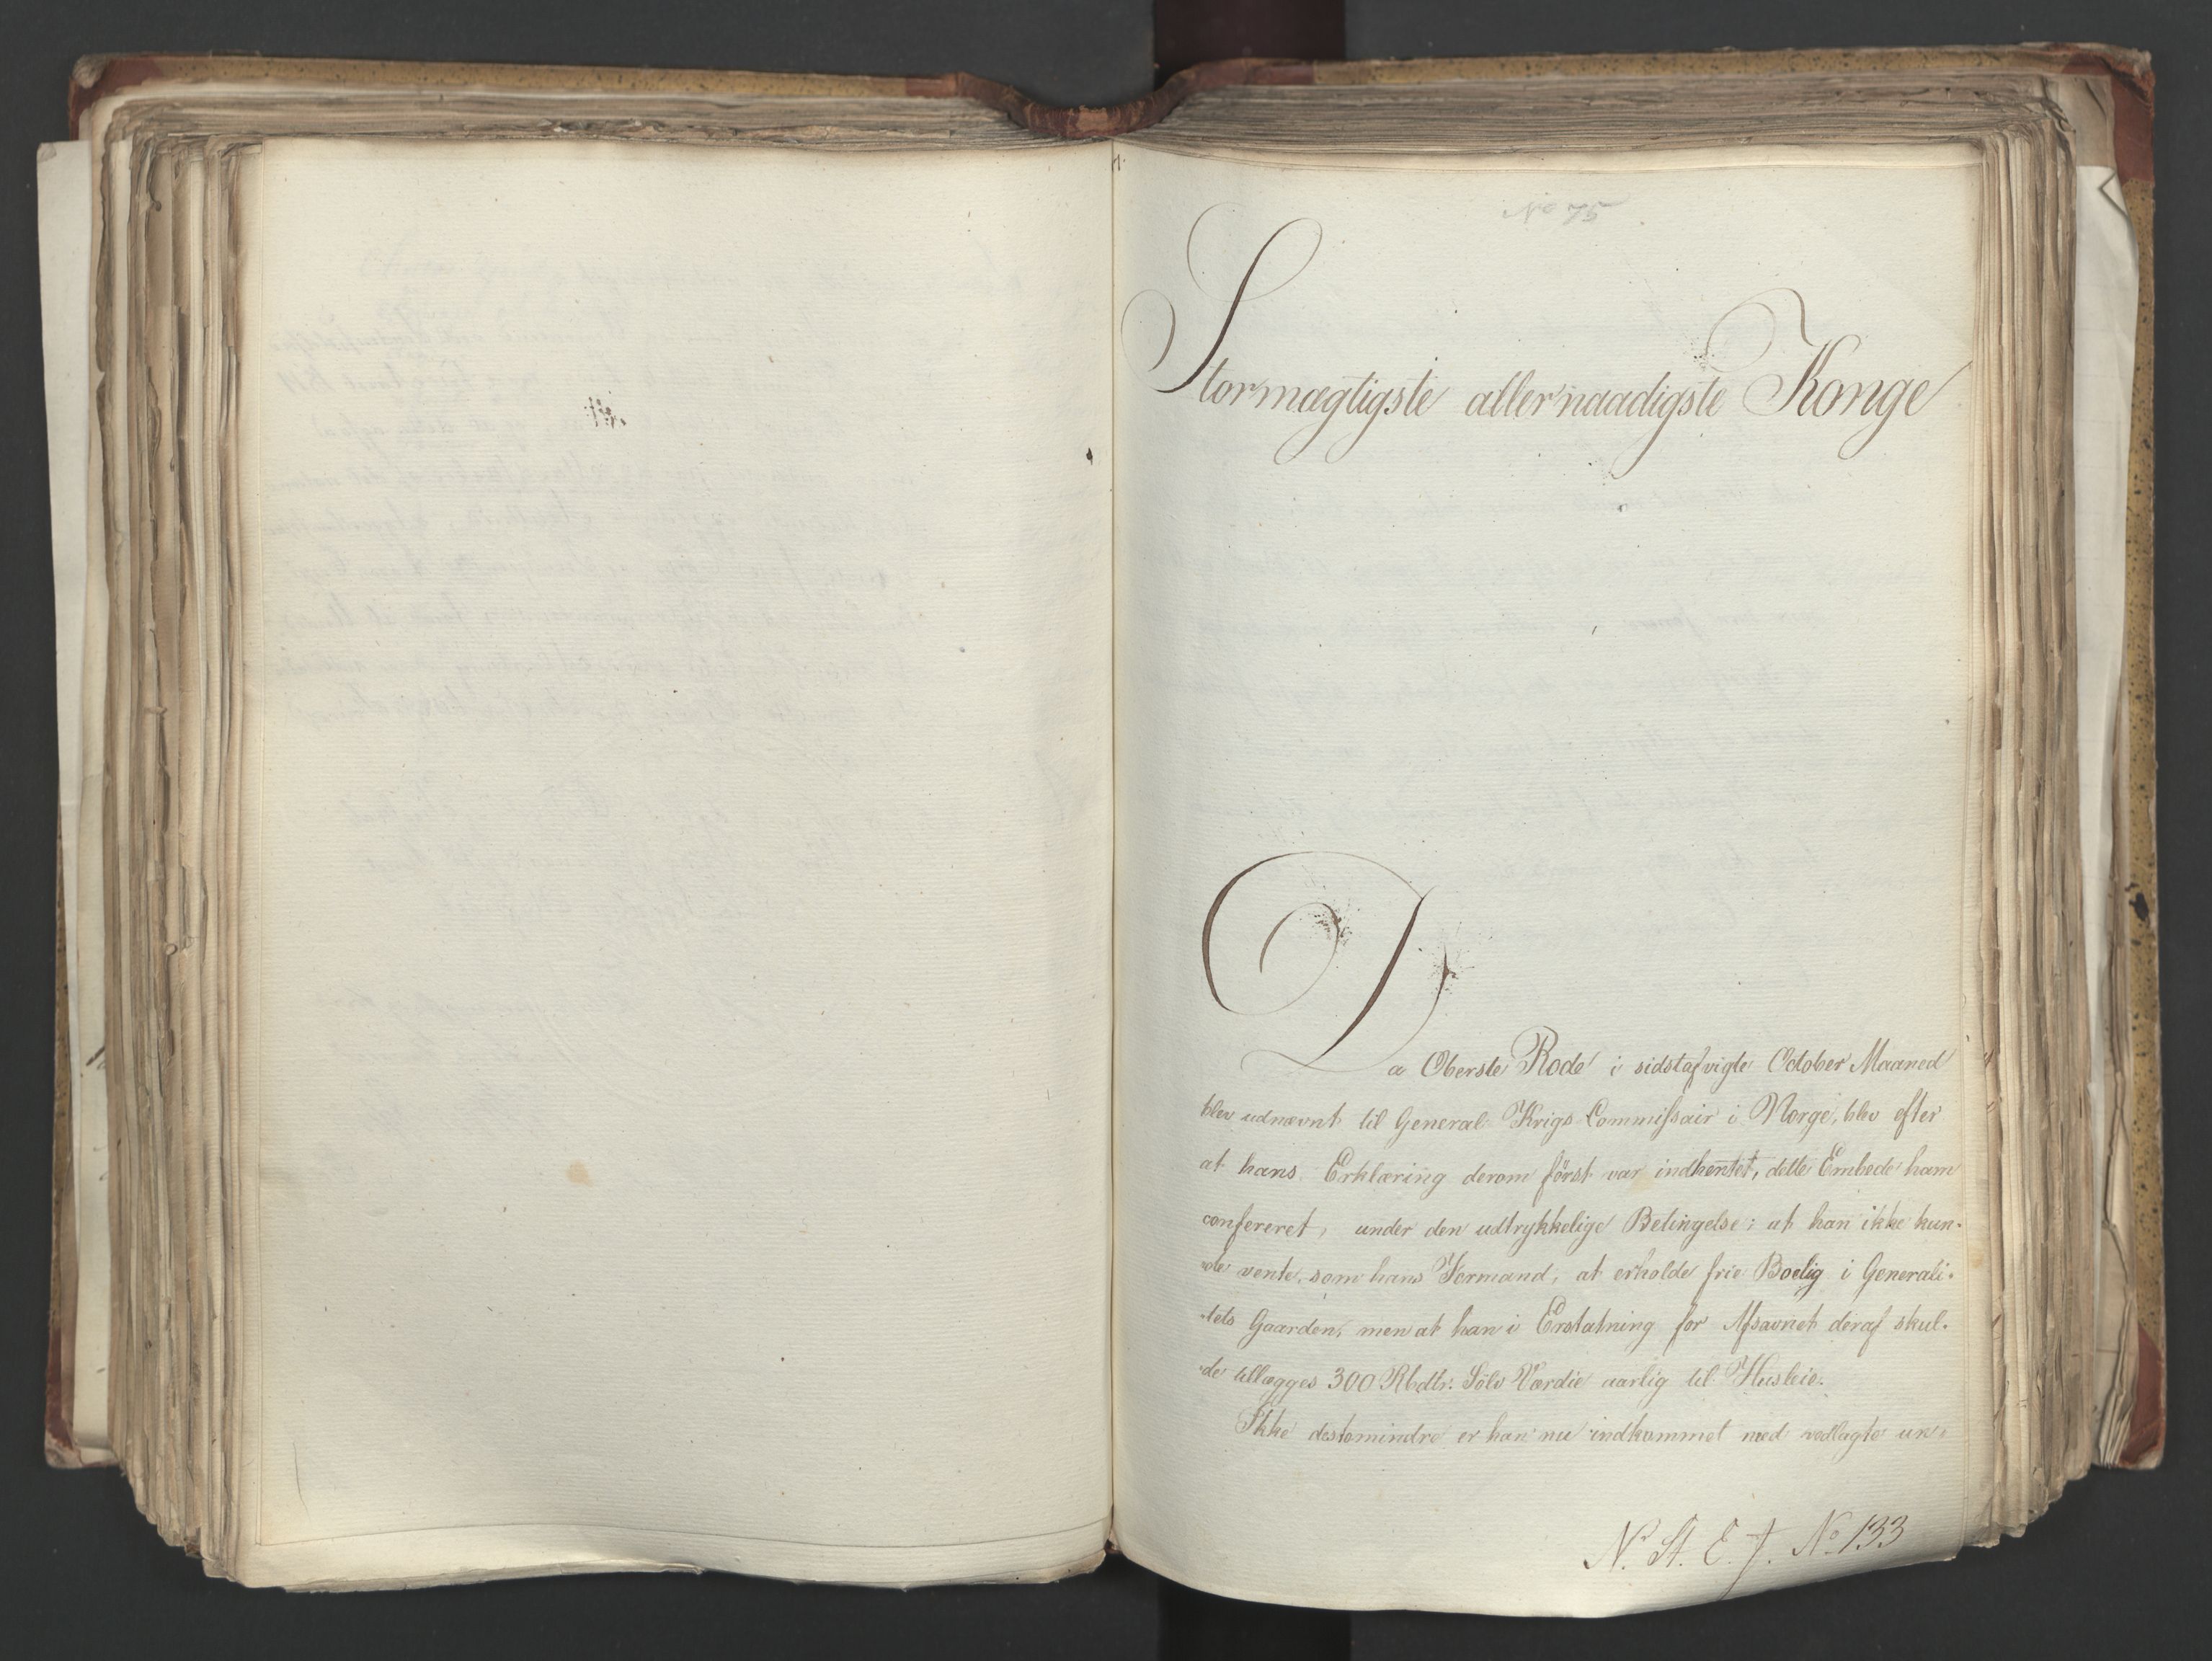 No 75
Stormægtigste allernaadigste Konge
Da Oberste Rode i sidstafvigte October Maaned
blev udnævnt til General Krigs Commissair i Norge, blev efter
at hans Erklæring derom först var indhentet, dette Embede ham
confereret, under den udtrykkelige Betingelse: at han ikke kun-
-de vente, som hans Formand, at erholde frie Boelig i Generali-
-tets Gaarden, men at han i Erstatning for Afsavnet deraf skul-
-de tillægges 300 Rbdlr. Sölv Værdie aarlig til Husleie.
Ikke destomindre er han nu indkommet med vedlagte un-
N. St. E. J. No 133